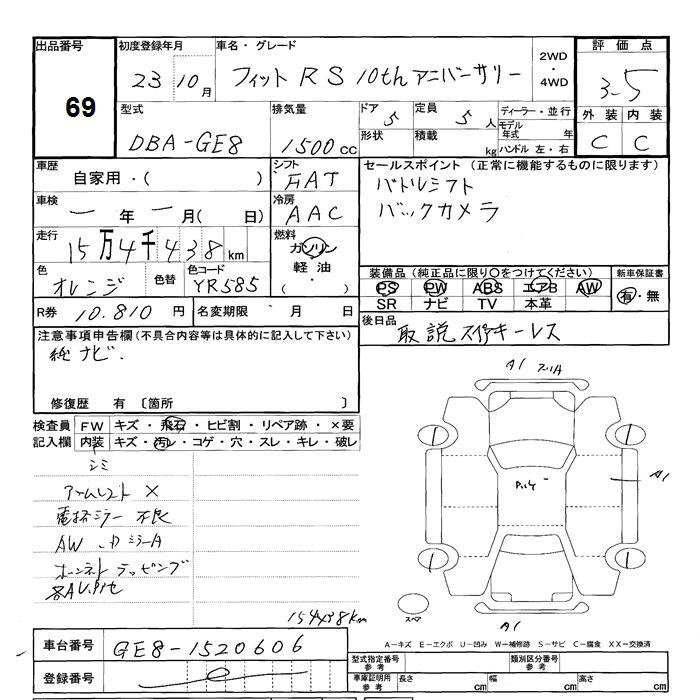 出品番号 初度登録年月 車名・グレード 2WD・4WD 評価点
69 23 10月 フィット RS 10th アニバーサリー 3.5
型式 排気量 ドア 5 定員 5人 ディーラー・並行 外装 内装
DBA-GE8 1500cc 形状 積載 kg モデル年式 年 ハンドル 左・右 C C
車歴 自家用・( ) シフト FAT セールスポイント (正常に機能するものに限ります)
車検 ー年ー月( 日) 冷房 AAC パドルシフト
バックカメラ
走行 15万4千438km 燃料 ガソリン 軽油 ( ・ )
色 オレンジ 色替 色コード YR585 装備品 (純正品に限り○をつけてください) 新車保証書
PS PW ABS エアB AW 有・無
SR ナビ TV 本革
R券 10.810円 名変期限 ・ 月 日 後日品 取説 スペアキーレス
注意事項申告欄 (不具合内容等は具体的に記入して下さい)
純ナビ.
修復歴 有 〔箇所 〕
検査員 FW キズ・飛石・ヒビ割・リペア跡・×要
記入欄 内装 キズ・汚レ・コゲ・穴・スレ・キレ・破レ
シミ
アームレスト ×
電格ミラー 不良
ボンネット ラッピング
A1
A1
スペア
A1
154438km
A-キズ E-エクボ U-凹み W-補修跡 S-サビ C-腐食 XX-交換済
車台番号 GE8-1520606
登録番号
型式指定番号 参考 類別区分番号 参考
車庫証明用 参考 長さ cm 幅 cm 高さ cm